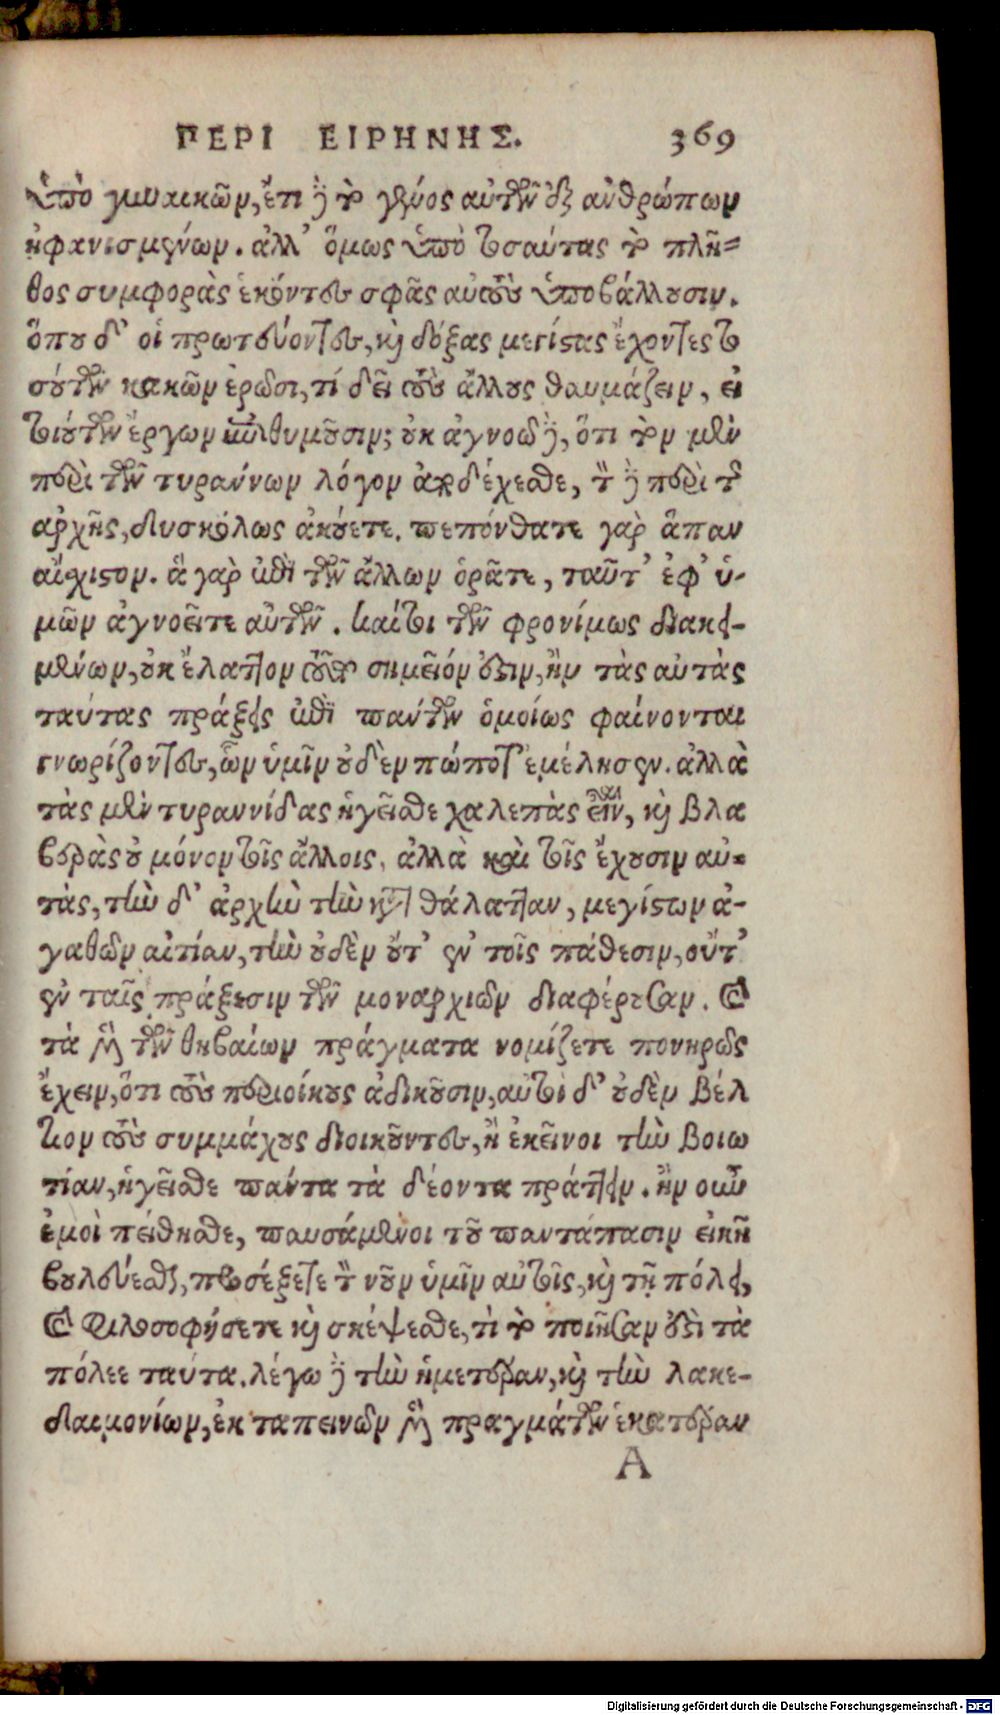 ΠΕΡΙ ΕΙΡΗΝΗΣ. 369
ὑπὸ γυναικῶν, ἔτι δὲ τὸ γένος αὐτῶν ἐξ ἀνθρώπων
ἠφανισμένων. ἀλλ' ὅμως ὑπὸ τοσαύτας τὸ πλῆ-
θος συμφορὰς ἑκόντες σφᾶς αὐτοὺς ὑποβάλλουσιν.
ὅπου δ' οἱ πρωτεύοντες, καὶ δόξας μεγίστας ἔχοντες το
σούτων κακῶν ἐρῶσι, τί δεῖ τοὺς ἄλλους θαυμάζειν, εἰ
τοιούτων ἔργων ἐπιθυμοῦσιν; οὐκ ἀγνοῶ δὲ, ὅτι τὸν μὲν
περὶ τῶν τυράννων λόγον ἀποδέχεσθε, τὸν δὲ περὶ τῆς
ἀρχῆς, δυσκόλως ἀκούετε. πεπόνθατε γὰρ ἅπαν
αἴσχιστον. ἃ γὰρ ἐπὶ τῶν ἄλλων ὁρᾶτε, ταῦτ' ἐφ' ὑ-
μῶν ἀγνοεῖτε αὐτῶν. καίτοι τῶν φρονίμως διακει-
μένων, οὐκ ἔλαττον τοῦτο σημεῖόν ἐστιν, ἢν τὰς αὐτὰς
ταύτας πράξεις ἐπὶ πάντων ὁμοίως φαίνονται
γνωρίζοντες, ὧν ὑμῖν οὐδὲν πώποτ' ἐμέλησεν. ἀλλὰ
τὰς μὲν τυραννίδας ἡγεῖσθε χαλεπὰς εἶναι, καὶ βλα
βερὰς οὐ μόνον τοῖς ἄλλοις, ἀλλὰ καὶ τοῖς ἔχουσιν αὐ-
τὰς, τὴν δ' ἀρχὴν τὴν κατὰ θάλατταν, μεγίστων ἀ-
γαθῶν αἰτίαν, τὴν οὐδὲν οὔτ' ἐν τοῖς πάθεσιν, οὔτ'
ἐν ταῖς πράξεσιν τῶν μοναρχιῶν διαφέρουσαν. καὶ
τὰ μὲν τῶν θηβαίων πράγματα νομίζετε πονηρῶς
ἔχειν, ὅτι τοὺς περιοίκους ἀδικοῦσιν, αὐτοὶ δ' οὐδὲν βέλ
τιον τοὺς συμμάχους διοικοῦντες, ἢ ἐκεῖνοι τὴν βοιω
τίαν, ἡγεῖσθε πάντα τὰ δέοντα πράττειν. ἢν οὖν
ἐμοὶ πείθησθε, παυσάμενοι τοῦ παντάπασιν εἰκῆ
βουλεύεσθαι, προσέξετε τὸν νοῦν ὑμῖν αὐτοῖς, καὶ τῇ πόλει,
καὶ φιλοσοφήσετε καὶ σκέψεσθε, τί τὸ ποιῆσαν ἐστὶ τὰ
πόλεε ταύτα. λέγω δὲ τὴν ἡμετέραν, καὶ τὴν λακε-
δαιμονίων, ἐκ ταπεινῶν μὲν πραγμάτων ἑκατέραν
Α
Digitalisierung gefördert durch die Deutsche Forschungsgemeinschaft - DFG